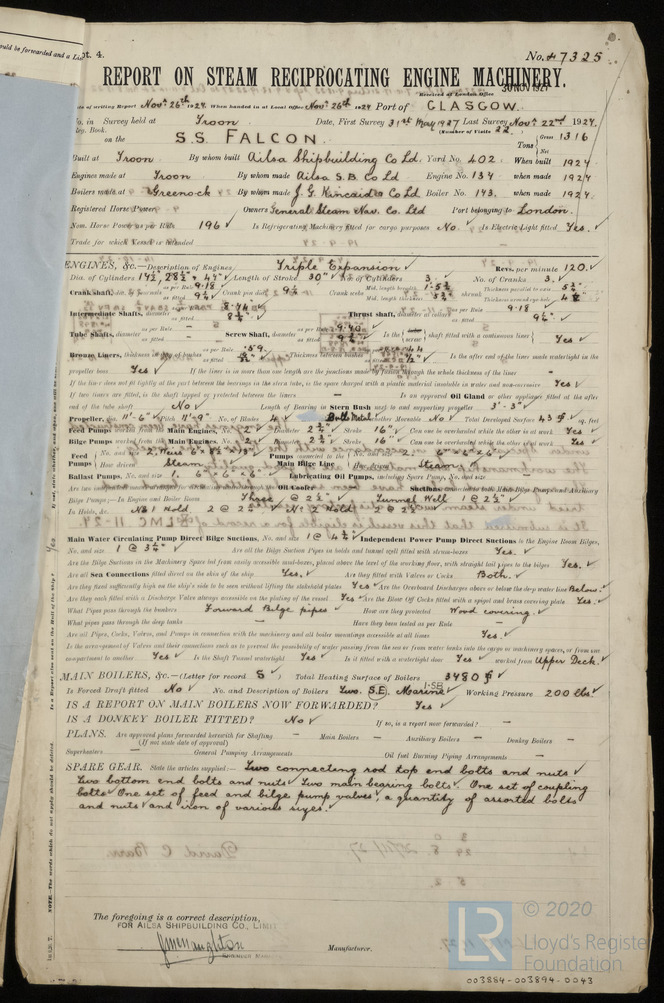 No. 47325
REPORT ON STEAM RECIPROCATING ENGINE MACHINERY.
Received at London Office 30 NOV 1927
Date of writing Report Nov. 26th 1927 When handed in at Local Office Nov. 26th 1927 Port of GLASGOW.
No. in Survey held at Troon Date, First Survey 31st May 1927 Last Survey Nov. 22nd 1927.
Reg. Book. (Number of Visits 22)
on the S.S. FALCON. Tons Gross 1316 Net
Built at Troon By whom built Ailsa Shipbuilding Co Ld. Yard No. 402 When built 1927
Engines made at Troon By whom made Ailsa S.B. Co Ld Engine No. 134 when made 1927
Boilers made at Greenock By whom made J. G. Kincaid & Co Ld Boiler No. 143. when made 1927
Registered Horse Power Owners General Steam Nav. Co. Ltd Port belonging to London.
Nom. Horse Power as per Rule 196 Is Refrigerating Machinery fitted for cargo purposes No Is Electric Light fitted Yes.
Trade for which Vessel is intended
ENGINES, &c.—Description of Engines Triple Expansion Revs. per minute 120.
Dia. of Cylinders 17½, 28½ & 47" Length of Stroke 30" No. of Cylinders 3 No. of Cranks 3.
Crank shaft, as per Rule 9.18 as fitted 9¼ Crank pin dia. 9¼ Crank webs
Intermediate Shafts, diameter as fitted 8¾ Thrust shaft, as per Rule 9.18
Tube Shafts, diameter Screw Shaft, diameter as per Rule 9.40 shaft fitted with a continuous liner Yes
Bronze Liners, thickness in way of bushes Thickness between bushes Is the after end of the liner made watertight in the
propeller boss Yes If the liner is in more than one length are the joints made by fusion through the whole thickness of the liner –
If the liner does not fit tightly at the part between the bearings in the stern tube, is the space charged with a plastic material insoluble in water and non-corrosive Yes
If two liners are fitted, is the shaft lapped or protected between the liners – Is an approved Oil Gland or other appliance fitted at the after
end of the tube shaft No Length of Bearing in Stern Bush next to and supporting propeller 3'-3"
Propeller, dia. 11'-6" Pitch 11'-9" No. of Blades 4 Material Bull Metal whether Moveable No Total Developed Surface 43 sq. feet
Feed Pumps worked from the Main Engines, No. 2 Diameter 2¾" Stroke 16" Can one be overhauled while the other is at work Yes
Bilge Pumps worked from the Main Engines, No. 2 Diameter 2¾" Stroke 16" Can one be overhauled while the other is at work Yes
Feed Pumps No. and size 2, Weirs
How driven Steam Pumps connected to the Main Bilge Line How driven Steam
Ballast Pumps, No. and size 1. 6" x 6" x 6" Lubricating Oil Pumps, including Spare Pump, No. and size –
Bilge Pumps;—In Engine and Boiler Room Three @ 2½" Tunnel Well 1 @ 2½"
In Holds, &c. No 1 Hold 2 @ 2½" No 2 Hold 2 @ 2½"
Main Water Circulating Pump Direct Bilge Suctions, No. and size 1 @ 4½" Independent Power Pump Direct Suctions to the Engine Room Bilges,
No. and size 1 @ 3½" Are all the Bilge Suction Pipes in holds and tunnel well fitted with strum-boxes Yes.
Are the Bilge Suctions in the Machinery Space led from easily accessible mud-boxes, placed above the level of the working floor, with straight tail pipes to the bilges Yes.
Are all Sea Connections fitted direct on the skin of the ship Yes. Are they fitted with Valves or Cocks Both.
Are they fixed sufficiently high on the ship's side to be seen without lifting the stokehold plates Yes Are the Overboard Discharges above or below the deep water line Below.
Are they each fitted with a Discharge Valve always accessible on the plating of the vessel Yes Are the Blow Off Cocks fitted with a spigot and brass covering plate Yes.
What Pipes pass through the bunkers Forward Bilge pipes How are they protected Wood covering.
What pipes pass through the deep tanks – Have they been tested as per Rule –
Are all Pipes, Cocks, Valves, and Pumps in connection with the machinery and all boiler mountings accessible at all times Yes.
Is the arrangement of Valves and their connections such as to prevent the possibility of water passing from the sea or from water tanks into the cargo or machinery spaces, or from one
compartment to another Yes Is the Shaft Tunnel watertight Yes Is it fitted with a watertight door Yes worked from Upper Deck.
MAIN BOILERS, &c.—(Letter for record S) Total Heating Surface of Boilers 3480
Is Forced Draft fitted No No. and Description of Boilers Two. S.E. Marine 1-SB Working Pressure 200 lbs.
IS A REPORT ON MAIN BOILERS NOW FORWARDED? Yes
IS A DONKEY BOILER FITTED? No If so, is a report now forwarded? –
PLANS. Are approved plans forwarded herewith for Shafting – Main Boilers – Auxiliary Boilers – Donkey Boilers –
(If not state date of approval)
Superheaters – General Pumping Arrangements – Oil fuel Burning Piping Arrangements –
SPARE GEAR. State the articles supplied:— Two connecting rod top end bolts and nuts
Two bottom end bolts and nuts Two main bearing bolts One set of coupling
bolts One set of feed and bilge pump valves, a quantity of assorted bolts
and nuts and iron of various sizes.
The foregoing is a correct description,
FOR AILSA SHIPBUILDING CO., LIMITED
Manufacturer.
© 2020
LR Lloyd's Register
Foundation
003884-003894-0043